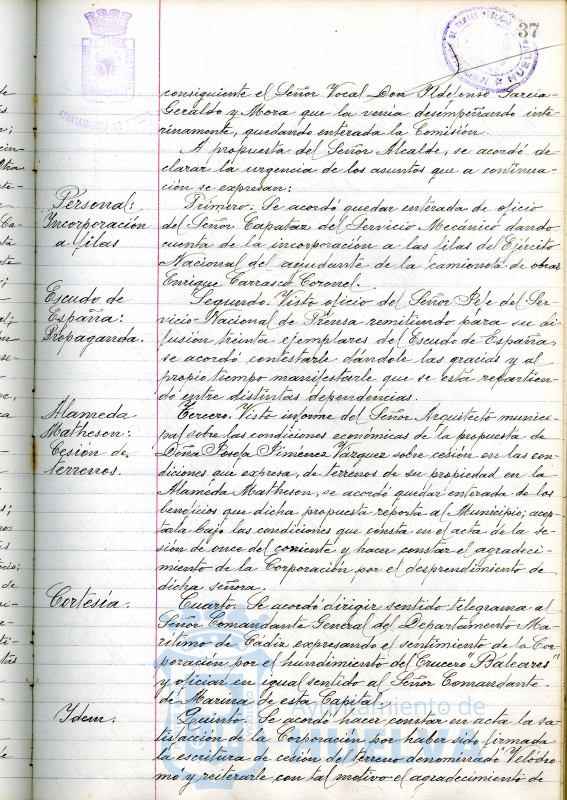 37
consiguiente el Señor Vocal Don Ildefonso García-
Geraldo y Mora que la venía desempeñando inte-
rinamente, quedando enterada la Comisión.
A propuesta del Señor Alcalde, se acordó de-
clarar la urgencia de los asuntos que a continua-
ción se expresan:
Personal:
Incorporación
a filas
Primero: Se acordó quedar enterada de oficio
del Señor Capataz del Servicio Mecánico dando
cuenta de la incorporación a las filas del Ejército
Nacional del ayudante de la camioneta de obras
Enrique Carrasco Coronel.
Escudo de
España:
Propaganda.
Segundo. Visto oficio del Señor Jefe del Ser-
vicio Nacional de Prensa remitiendo para su di-
fusión treinta ejemplares del Escudo de España,
se acordó contestarle dándole las gracias y al
propio tiempo manifestarle que se está repartien-
do entre distintas dependencias.
Alameda
Matheson:
Cesión de
terrenos.
Tercero. Visto informe del Señor Arquitecto munici-
pal sobre las condiciones económicas de la propuesta de
Doña Josefa Jiménez Vázquez sobre cesión en las con-
diciones que expresa, de terrenos de su propiedad en la
Alameda Matheson, se acordó quedar enterada de los
beneficios que dicha propuesta reporta al Municipio; acep-
tarla bajo las condiciones que consta en el acta de la se-
sión de once del corriente y hacer constar el agradeci-
miento de la Corporación por el desprendimiento de
dicha señora.
Cortesía.
Cuarto. Se acordó dirigir sentido telegrama al
Señor Comandante General del Departamento Ma-
rítimo de Cádiz expresando el sentimiento de la Cor-
poración por el hundimiento del Crucero "Baleares"
y oficiar en igual sentido al Señor Comandante
de Marina de esta Capital.
Idem.
Quinto. Se acordó hacer constar en acta la sa-
tisfacción de la Corporación por haber sido firmada
la escritura de cesión del terreno denominado "Velódro-
mo" y reiterarle con tal motivo el agradecimiento de
Ayuntamiento de
HUELVA